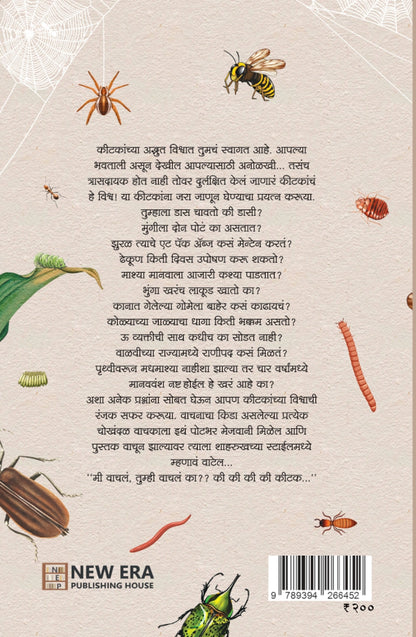 कीटकांच्या अद्भुत विश्वात तुमचं स्वागत आहे. आपल्या
भवताली असून देखील आपल्यासाठी अनोळखी... तसंच
त्रासदायक होत नाही तोवर दुर्लक्षित केलं जाणारं कीटकांचं
हे विश्व! या कीटकांना जरा जाणून घेण्याचा प्रयत्न करूया.
तुम्हाला डास चावतो की डासी?
मुंगीला दोन पोटं का असतात?
झुरळ त्याचे एट पॅक ॲब्ज कसं मेन्टेन करतं?
ढेकूण किती दिवस उपोषण करू शकतो?
माश्या मानवाला आजारी कश्या पाडतात?
भुंगा खरंच लाकूड खातो का?
कानात गेलेल्या गोमेला बाहेर कसं काढायचं?
कोळ्याच्या जाळ्याचा धागा किती भक्कम असतो?
ऊ व्यक्तीची साथ कधीच का सोडत नाही?
वाळवीच्या राज्यामध्ये राणीपद कसं मिळतं?
पृथ्वीवरून मधमाश्या नाहीशा झाल्या तर चार वर्षांमध्ये
मानववंश नष्ट होईल हे खरं आहे का?
अशा अनेक प्रश्नांना सोबत घेऊन आपण कीटकांच्या विश्वाची
रंजक सफर करूया. वाचनाचा किडा असलेल्या प्रत्येक
चोखंदळ वाचकाला इथं पोटभर मेजवानी मिळेल आणि
पुस्तक वाचून झाल्यावर त्याला शाहरुखच्या स्टाईलमध्ये
म्हणावं वाटेल...
"मी वाचलं, तुम्ही वाचलं का?? की की की की कीटक..."
NEP
NEW ERA
PUBLISHING HOUSE
9 789394 266452
₹ २००